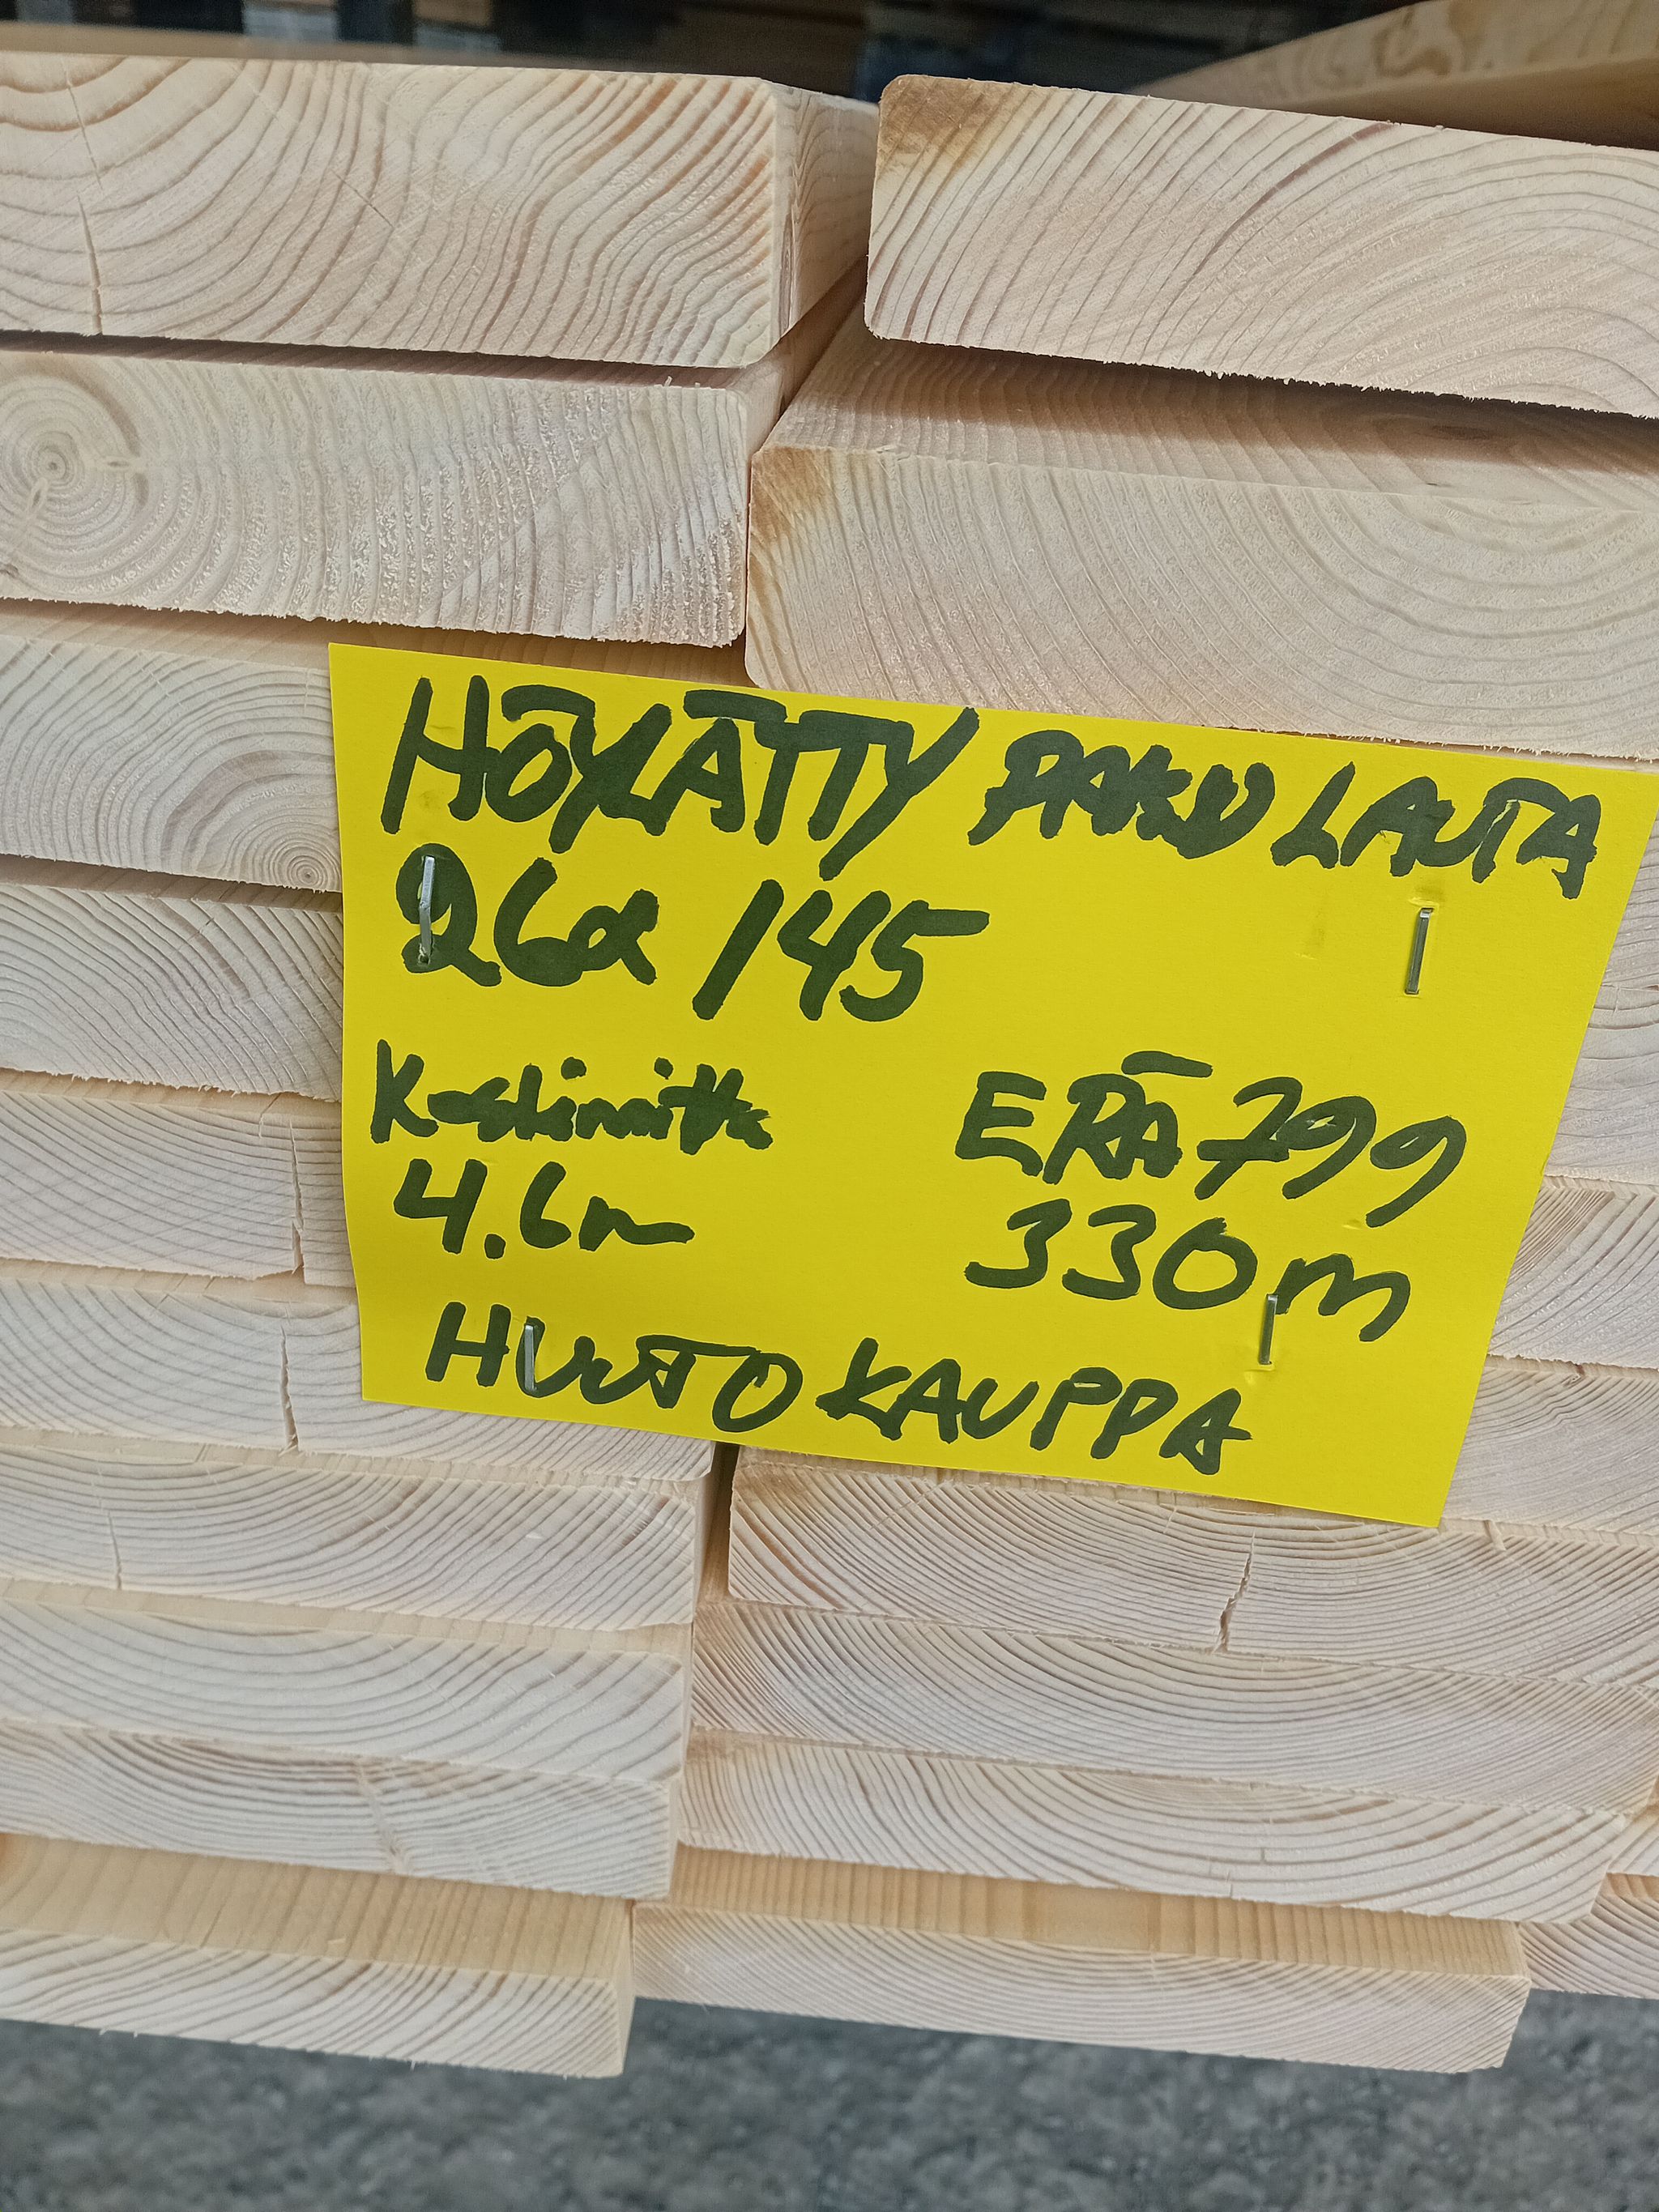 HÖYLÄTTY PAKSU LAUTA
26x145
Keskimitta
4.6m
ERÄ 799
330m
HUUTOKAUPPA